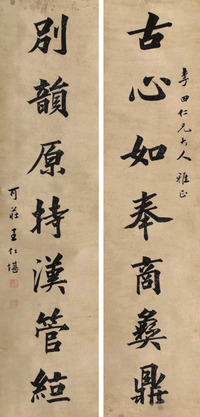 古心如奉商彝鼎
季田仁兄大人雅正
別韻原持漢管絃
可莊王仁堪